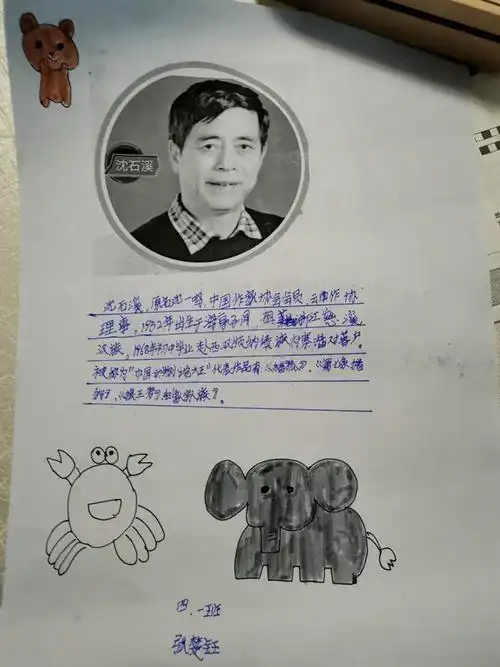 沈石溪
沈石溪,原名沈一鸣,中国作家协会会员,云南作协
理事,1952年出生于上海亭子间,祖籍浙江慈溪,
汉族,1968年初中毕业赴西双版纳傣族村寨插队落户。
被称为"中国动物小说大王"代表作品有《》,《第七条猎
狗》,《狼王梦》
四、一班
张楚钰